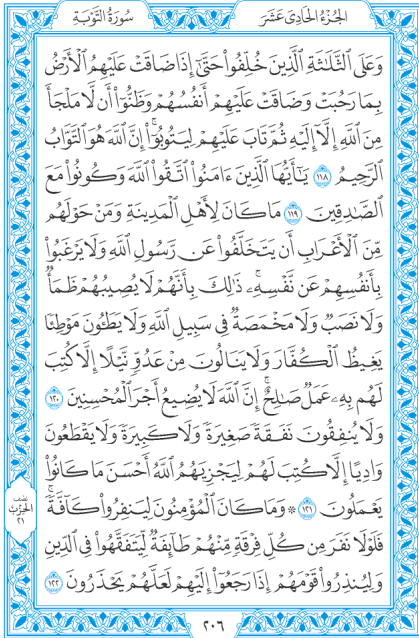 الجُزْءُ الحَادِى عَشَرَ
سُورَةُ التَّوْبَةِ
وَعَلَى ٱلثَّلَٰثَةِ ٱلَّذِينَ خُلِّفُوا۟ حَتَّىٰٓ إِذَا ضَاقَتْ عَلَيْهِمُ ٱلْأَرْضُ
بِمَا رَحُبَتْ وَضَاقَتْ عَلَيْهِمْ أَنفُسُهُمْ وَظَنُّوٓا۟ أَن لَّا مَلْجَأَ
مِنَ ٱللَّهِ إِلَّآ إِلَيْهِ ثُمَّ تَابَ عَلَيْهِمْ لِيَتُوبُوٓا۟ ۚ إِنَّ ٱللَّهَ هُوَ ٱلتَّوَّابُ
ٱلرَّحِيمُ ١١٨ يَٰٓأَيُّهَا ٱلَّذِينَ ءَامَنُوا۟ ٱتَّقُوا۟ ٱللَّهَ وَكُونُوا۟ مَعَ
ٱلصَّٰدِقِينَ ١١٩ مَا كَانَ لِأَهْلِ ٱلْمَدِينَةِ وَمَنْ حَوْلَهُم
مِّنَ ٱلْأَعْرَابِ أَن يَتَخَلَّفُوا۟ عَن رَّسُولِ ٱللَّهِ وَلَا يَرْغَبُوا۟
بِأَنفُسِهِمْ عَن نَّفْسِهِۦ ۚ ذَٰلِكَ بِأَنَّهُمْ لَا يُصِيبُهُمْ ظَمَأٌ
وَلَا نَصَبٌ وَلَا مَخْمَصَةٌ فِى سَبِيلِ ٱللَّهِ وَلَا يَطَـُٔونَ مَوْطِئًا
يَغِيظُ ٱلْكُفَّارَ وَلَا يَنَالُونَ مِنْ عَدُوٍّ نَّيْلًا إِلَّا كُتِبَ
لَهُم بِهِۦ عَمَلٌ صَٰلِحٌ ۚ إِنَّ ٱللَّهَ لَا يُضِيعُ أَجْرَ ٱلْمُحْسِنِينَ ١٢٠
وَلَا يُنفِقُونَ نَفَقَةً صَغِيرَةً وَلَا كَبِيرَةً وَلَا يَقْطَعُونَ
وَادِيًا إِلَّا كُتِبَ لَهُمْ لِيَجْزِيَهُمُ ٱللَّهُ أَحْسَنَ مَا كَانُوا۟
يَعْمَلُونَ ١٢١ ۞ وَمَا كَانَ ٱلْمُؤْمِنُونَ لِيَنفِرُوا۟ كَآفَّةً ۚ
فَلَوْلَا نَفَرَ مِن كُلِّ فِرْقَةٍ مِّنْهُمْ طَآئِفَةٌ لِّيَتَفَقَّهُوا۟ فِى ٱلدِّينِ
وَلِيُنذِرُوا۟ قَوْمَهُمْ إِذَا رَجَعُوٓا۟ إِلَيْهِمْ لَعَلَّهُمْ يَحْذَرُونَ ١٢٢
نصف
الحِزْب
٢١
٢٠٦